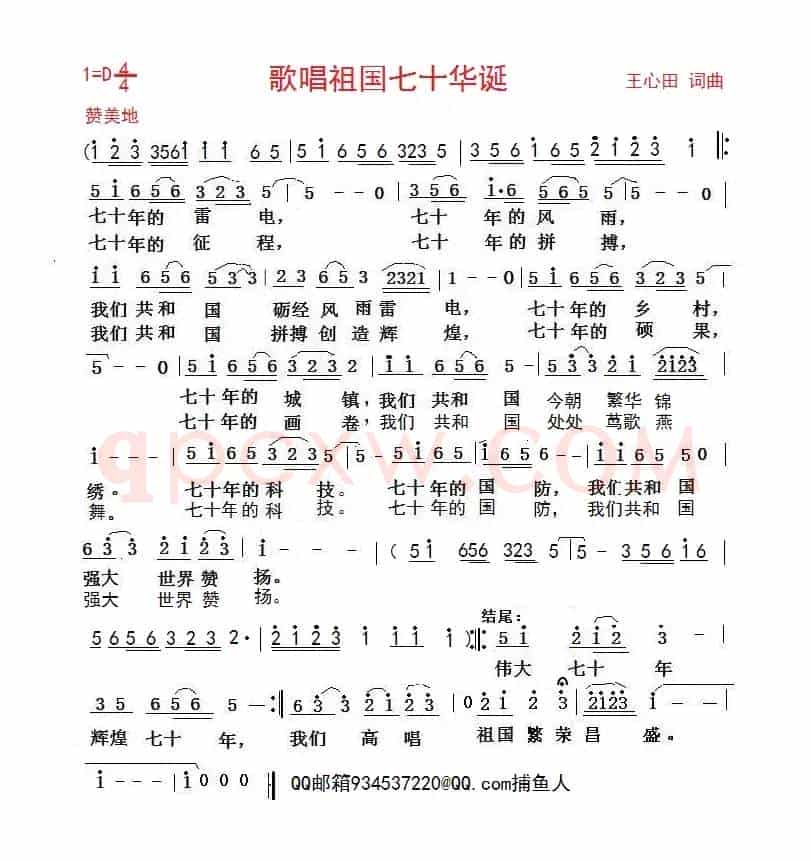 1=D 4/4 歌唱祖国七十华诞 王心田 词曲
赞美地
(i 2 3 3561 i i 6 5 | 5 i 6 5 6 323 5 | 3 5 6 i 6 5 2 i 2 3 i |:
5 i 6 5 6 3 2 3 5 | 5 - - 0 | 3 5 6 i·6 5 6 5 5 | 5 - - 0 |
七十年的 雷 电， 七十 年的风 雨，
七十年的 征 程， 七十 年的拼 搏，
i i 6 5 6 5 3 3 | 2 3 6 5 6 5 2321 | 1 - - 0 | 5 i 6 5 6 3 2 3 5 |
我们共和 国 砺经风 雨雷 电， 七十年的 乡 村，
我们共和 国 拼搏创 造辉 煌， 七十年的 硕 果，
5 - - 0 | 5 i 6 5 6 3 2 3 2 | i i 6 5 6 5 - | 5 3 3 6 i 2 i 2 3 |
七十年的 城 镇，我们 共和 国 今朝 繁华 锦
七十年的 画 卷，我们 共和 国 处处 莺歌 燕
i - - - | 5 i 6 5 6 3 2 3 5 | 5 - 5 i 6 5 6 | i 2 3 5 i i 6 5 5 0 |
绣。 七十年的科 技。 七十年的国 防，我们共和 国
舞。 七十年的科 技。 七十年的国 防，我们共和 国
6 3 3 2 i 2 3 | i - - - | (5 i 656 323 5 | 5 - 3 5 6 i 6 |
强大 世界赞 扬。
强大 世界赞 扬。
5 6 5 6 3 2 3 2· | 2 i 2 3 3 i i i i ):|: 结尾： 5 i 2 i 2 3 - |
伟大 七十 年
3 5 6 5 6 5 5 - :| 6 3 3 2 i 2 3 | 0 2 i 2 3 i 2 i 2 3 |
辉煌 七十 年， 我们 高 唱 祖国繁荣昌 盛。
i - - - | i 0 0 0 ‖ QQ邮箱934537220@QQ.com捕鱼人
qpcxw.COM